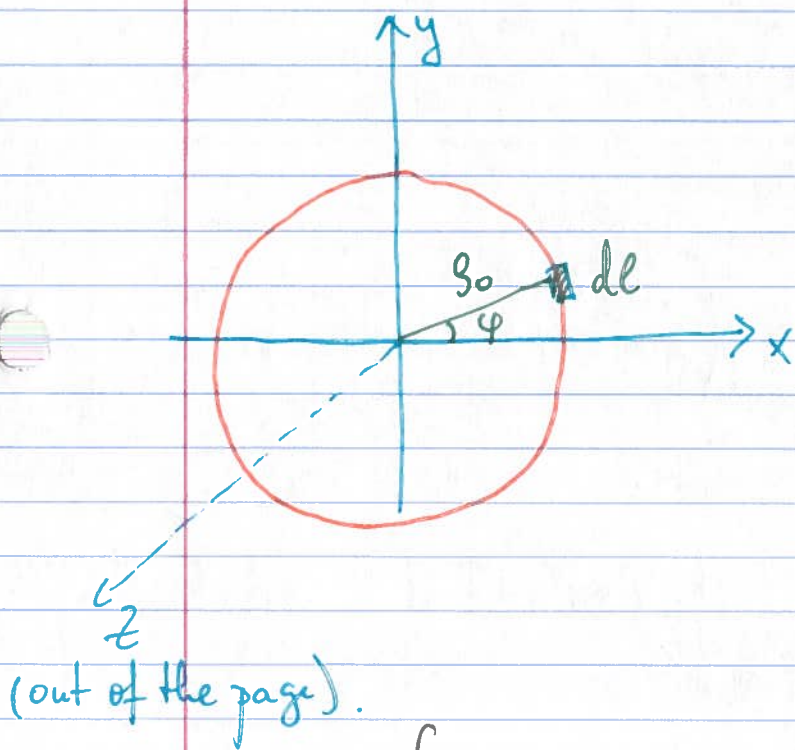 y
ρ₀
dl
φ
x
z
(out of the page).